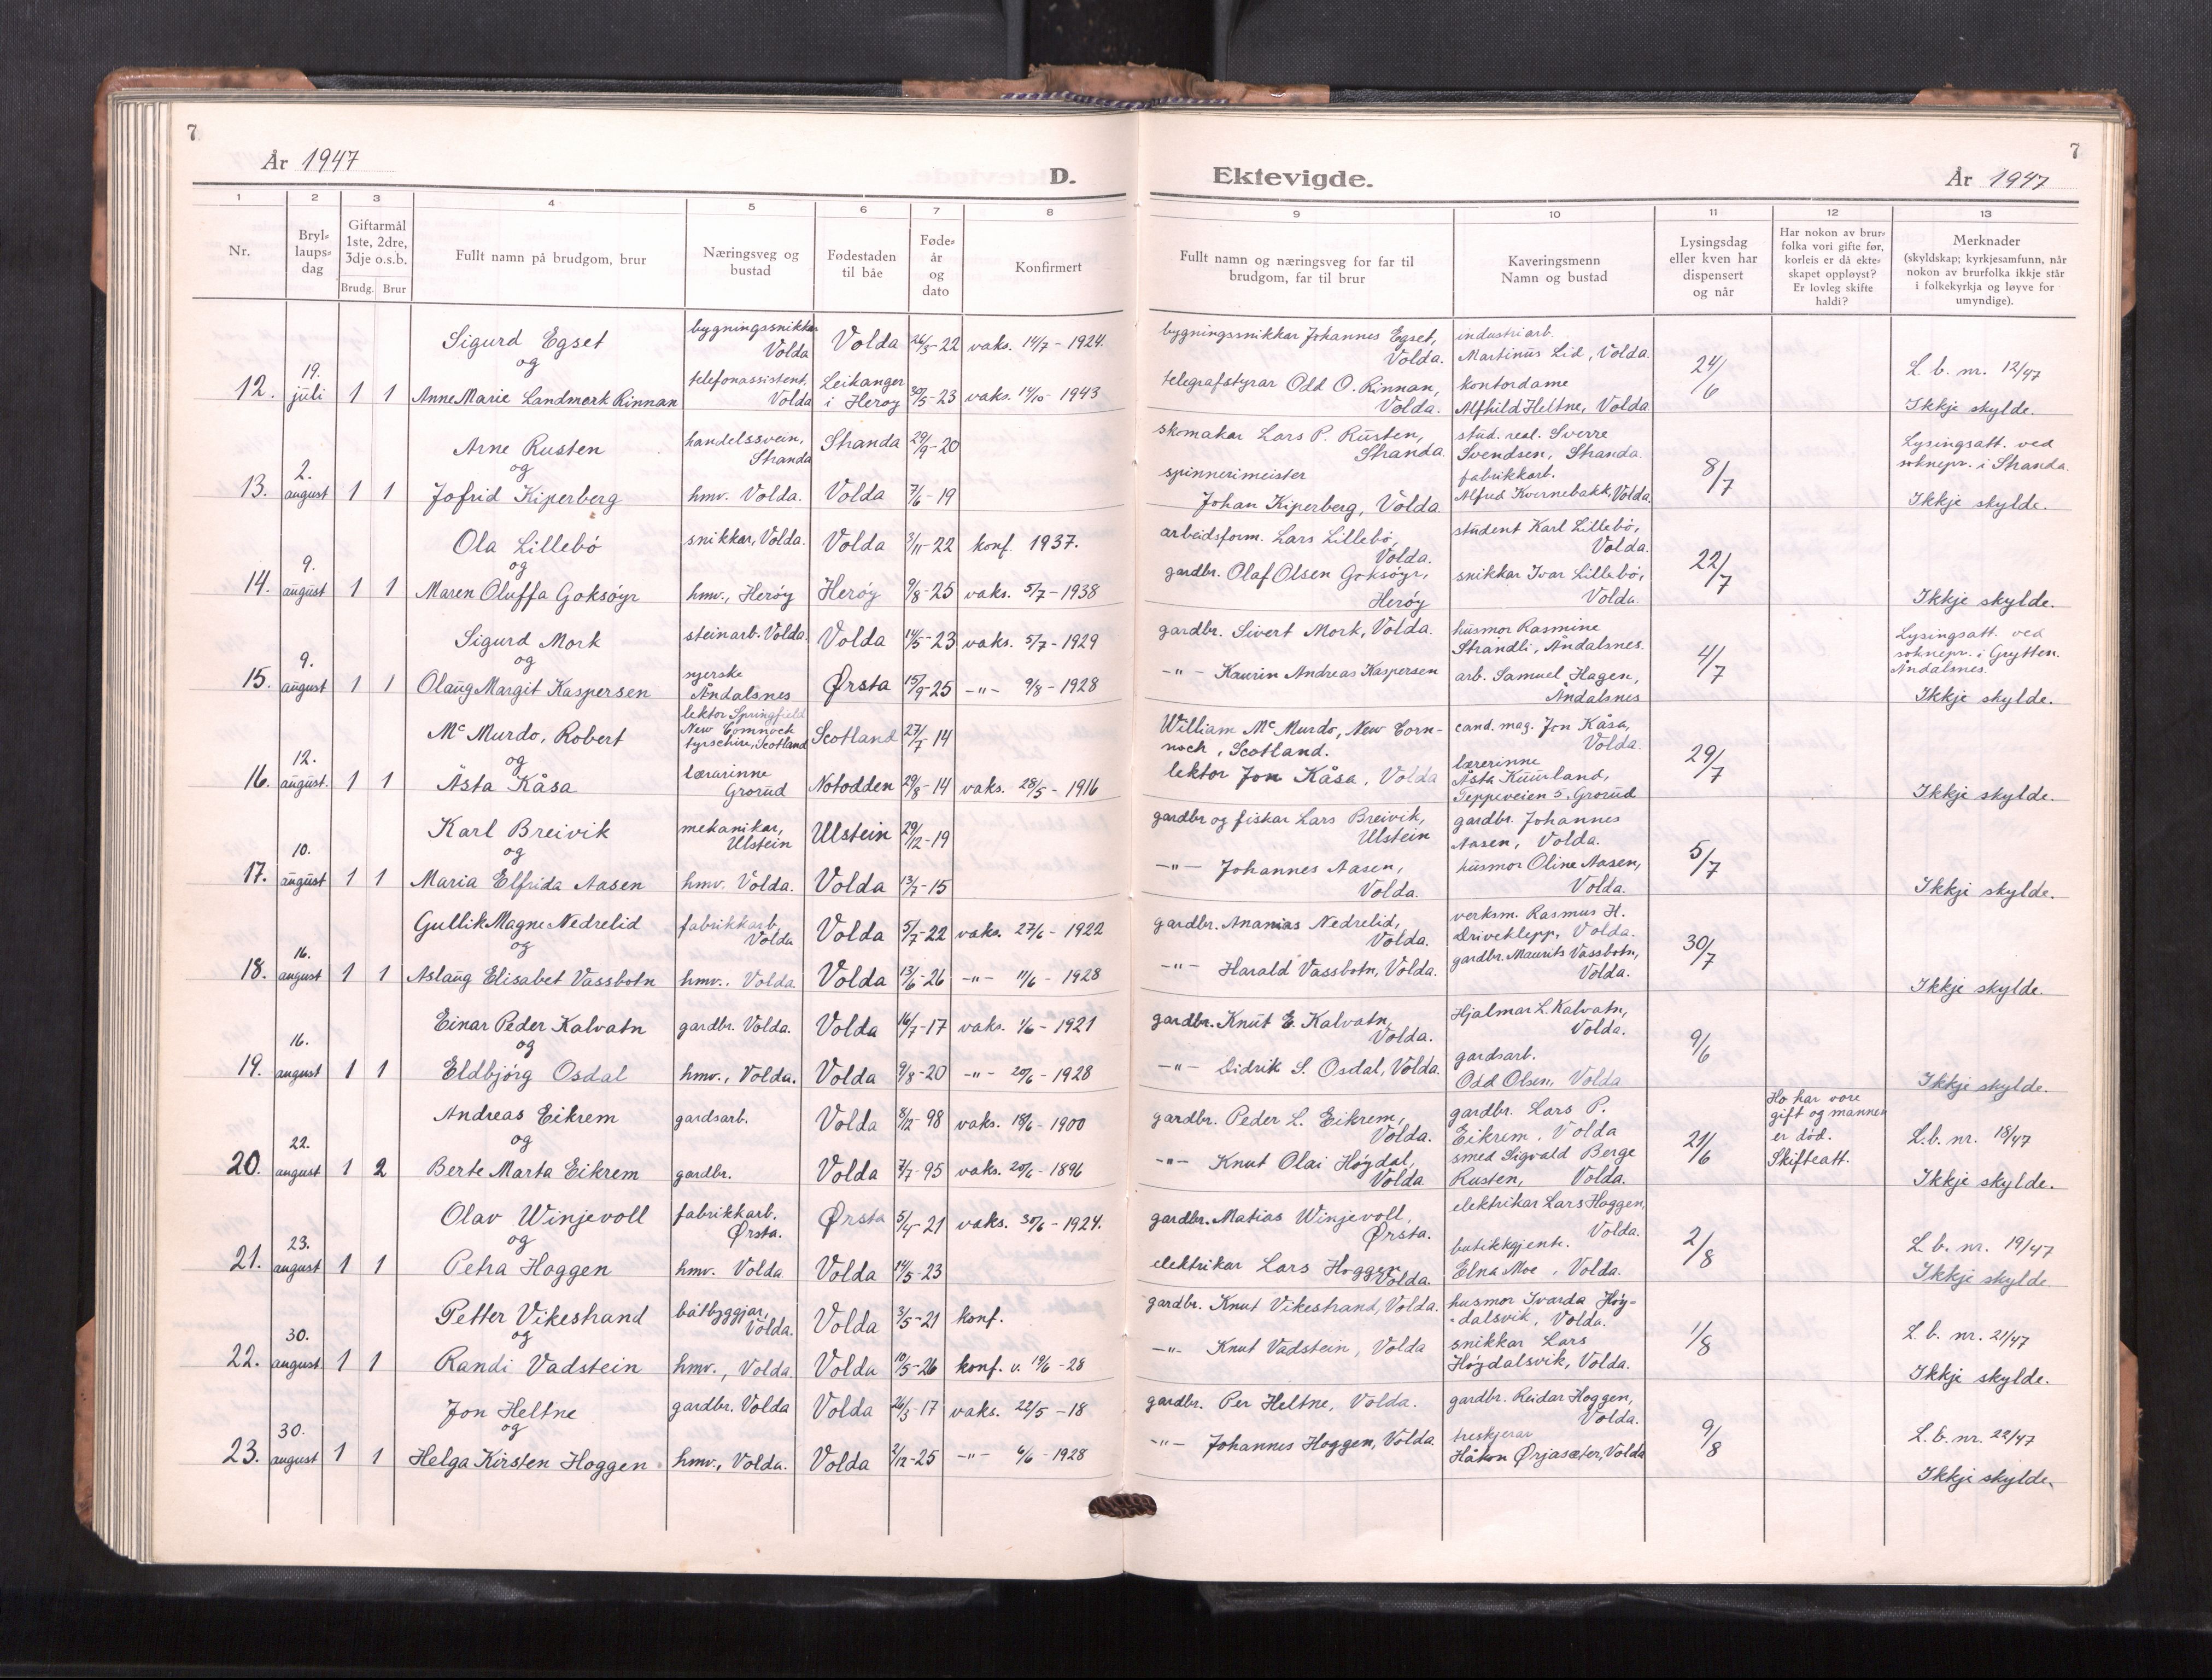 7
År 1947
D.
1 2 3 4 5 6 7 8
Nr.
Bryl-
laups-
dag
Giftarmål
1ste, 2dre,
3dje o.s.b.
Brudg. Brur
Fullt namn på brudgom, brur
Næringsveg og
bustad
Fødestaden
til båe
Føde-
år
og
dato
Konfirmert
Sigurd Egset bygningssnikkar Volda Volda 26/3-22 vaks. 14/7 - 1924.
og
12. 19. juli 1 1 Anne Marie Landmark Rinnan telefonassistent. Volda Leikanger i Herøy 30/5-23 vaks. 14/10 - 1943
Arne Rusten handelssvein, Stranda Stranda 29/9-20
og
13. 2. august 1 1 Jofrid Kiperberg hmv. Volda. Volda 7/6-19
Ola Lillebö snikkar, Volda. Volda 3/11-22 konf. 1937.
og
14. 9. august 1 1 Maren Oluffa Goksöyr hmv., Herøy Herøy 9/8-25 vaks. 5/7 - 1938
Sigurd Mork steinarb. Volda. Volda 14/5-23 vaks. 5/7 - 1929
og
15. 9. august 1 1 Olaug Margit Kaspersen syerske Åndalsnes Ørsta 15/9-25 -"- 9/8 - 1928
Mc Murdo, Robert lektor Springfield New Comnock Scotland Scotland 27/7-14
og
16. 12. august. 1 1 Åsta Kåsa lærarinne Grorud Notodden 29/8-14 vaks. 28/5 - 1916
Karl Breivik mekanikar, Ulstein Ulstein 29/12-19
og
17. 10. august 1 1 Maria Elfrida Aasen hmv. Volda. Volda 13/7-15
Gullik Magne Nedrelid fabrikkarb. Volda Volda 5/7-22 vaks. 27/6 - 1922
og
18. 16. august 1 1 Aslaug Elisabet Vassbotn hmv., Volda Volda 13/6-26 -"- 11/6 - 1928
Einar Peder Kalvatn gardbr. Volda. Volda 16/7-17 vaks. 1/6 - 1921
og
19. 16. august 1 1 Eldbjörg Osdal hmv., Volda. Volda 9/8-20 -"- 20/6 - 1928
Andreas Eikrem gardsarb. Volda 8/12-98 vaks. 18/6 - 1900
og
20. 22. august 1 2 Berte Marta Eikrem gardbr. Volda 7/7-95 vaks. 20/6 - 1896
Olav Winjevoll fabrikkarb. Ørsta. Ørsta 5/4-21 vaks. 30/6 - 1924.
og
21. 23. august 1 1 Petra Hoggen hmv. Volda. Volda 14/5-23
Petter Vikestrand båtbyggjar, Volda. Volda 3/5-21 konf.
og
22. 30. august 1 1 Randi Vadstein hmv., Volda. Volda 10/5-26 konf. v. 19/6 -28
Jon Heltne gardbr. Volda Volda 26/3-17 vaks. 22/5 - 18
og
23. 30. august 1 1 Helga Kirsten Hoggen hmv., Volda. Volda 2/12-25 -"- 6/6 - 1928
7
Ektevigde.
År 1947
9 10 11 12 13
Fullt namn og næringsveg for far til
brudgom, far til brur
Kaveringsmenn
Namn og bustad
Lysingsdag
eller kven har
dispensert
og når
Har nokon av brur-
folka vori gifte før,
korleis er då ekte-
skapet oppløyst?
Er lovleg skifte
haldi?
Merknader
(skyldskap; kyrkjesamfunn, når
nokon av brurfolka ikkje står
i folkekyrkja og løyve for
umyndige).
bygningssnikkar Johannes Egset, Volda. industriarb. Martinus Lid, Volda. 24/6 L. b. nr. 12/47
telegrafstyrar Odd O. Rinnan, Volda. kontordame Alfhild Heltne, Volda Ikkje skylde.
skomakar Lars P. Rusten, Stranda. stud. real. Sverre Svendsen, Stranda. 8/7 Lysingsatt. ved soknepr. i Stranda.
spinnerimeister Johan Kiperberg, Volda fabrikkarb. Alfred Kvernebakk, Volda. Ikkje skylde.
arbeidsform. Lars Lillebö, Volda. student Karl Lillebö, Volda. 22/7
gardbr. Olaf Olsen Goksöyr, Herøy snikkar Ivar Lillebö, Volda. Ikkje skylde.
gardbr. Sivert Mork, Volda. husmor Rasmine Strandli, Åndalsnes. 4/7 Lysingsatt. ved soknepr. i Grytten. Åndalsnes.
-"- Kaurin Andreas Kaspersen arb. Samuel Hagen, Åndalsnes Ikkje skylde.
William Mc Murdo, New Corn- noch, Scotland. cand. mag. Jon Kåsa, Volda. 29/7
lektor Jon Kåsa, Volda lærerinne Åsta Kuurland, Teppeveien 5. Grorud Ikkje skylde.
gardbr og fiskar Lars Breivik, Ulstein gardbr. Johannes Aasen, Volda. 5/7
-"- Johannes Aasen, Volda. husmor Oline Aasen, Volda. Ikkje skylde.
gardbr. Ananias Nedrelid, Volda. verksm. Rasmus H. Driveklepp, Volda. 30/7
-"- Harald Vassbotn, Volda. gardbr. Maurits Vassbotn, Volda. Ikkje skylde.
gardbr. Knut E. Kalvatn, Volda. Hjalmar L. Kalvatn, Volda. 9/6
-"- Didrik S. Osdal, Volda. gardsarb. Odd Olsen, Volda Ikkje skylde.
gardbr. Peder L. Eikrem, Volda. gardbr. Lars P. Eikrem, Volda 21/6 Ho har vore gift og mannen er död. Skifteatt. L.b. nr. 18/47
-"- Knut Olai Høydal, Volda smed Sigvald Berge Rusten, Volda. Ikkje skylde.
gardbr. Matias Winjevoll, Ørsta. elektrikar Lars Hoggen, Volda. 2/8 L. b. nr. 19/47
elektrikar Lars Hoggen Volda. butikkgjente. Elna Moe, Volda. Ikkje skylde
gardbr. Knut Vikestrand, Volda. husmor Ivarda Høy- -dalsvik, Volda. 1/8 L. b. nr. 21/47
-"- Knut Vadstein, Volda snikkar Lars Høydalsvik, Volda. Ikkje skylde.
gardbr. Per Heltne, Volda. gardbr. Reidar Hoggen, Volda. 9/8 L. b. nr. 22/47
-"- Johannes Hoggen, Volda. treskjerar Håkon Ørjasæter, Volda Ikkje skylde.